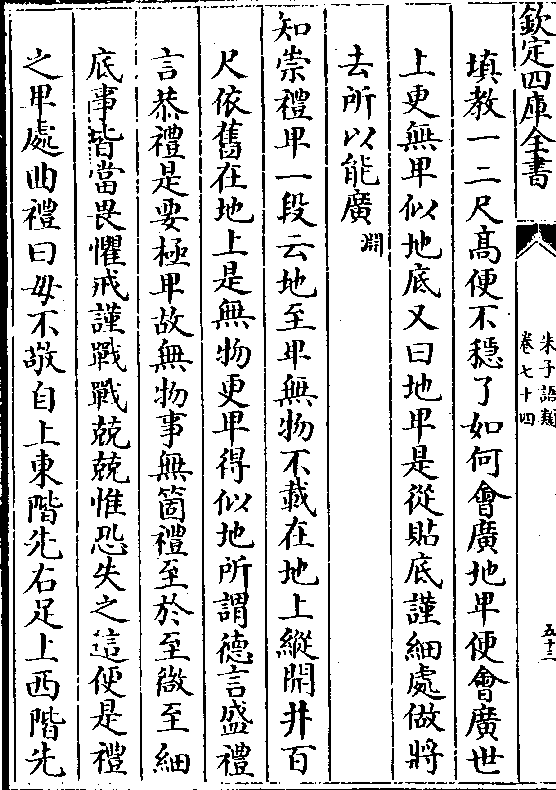 欽定四庫全書
朱子語類
卷七十四
五十三
填教一二尺高便不穩了如何會廣地卑便會廣世
上更無卑似地底又曰地卑是從貼底謹細處做將
去所以能廣淵
知崇禮卑一段云地至卑無物不載在地上縱開井百
尺依舊在地上是無物更卑得似地所謂德言盛禮
言恭禮是要極卑故無物事無箇禮至於至微至細
底事皆當畏懼戒謹戰戰兢兢惟恐失之這便是禮
之卑處曲禮曰毋不敬自上東階先右足上西階先